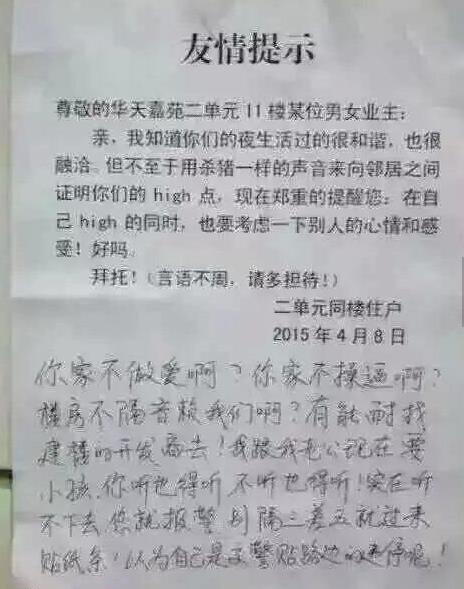 友情提示
尊敬的华天嘉苑二单元11楼某位男女业主：
亲，我知道你们的夜生活过的很和谐，也很
融洽。但不至于用杀猪一样的声音来向邻居之间
证明你们的 high 点，现在郑重的提醒您：在自
己 high 的同时，也要考虑一下别人的心情和感
受！好吗。
拜托！（言语不周，请多担待！）
二单元同楼住户
2015年4月8日
你家不做爱啊？你家不操逼啊？
楼房不隔音赖我们啊？有能耐找
建楼的开发商去！我跟我老公现在要
小孩，你听也得听 不听也得听！实在听
不下去您就报警 别隔三差五就过来
贴纸条！以为自己是交警贴路边的违停呢！